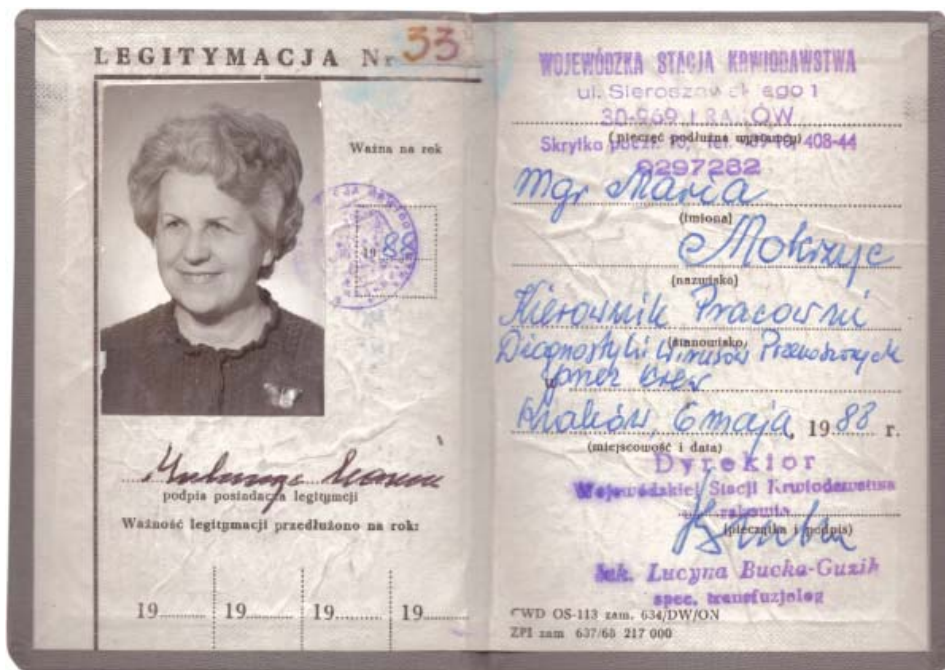 LEGITYMACJA Nr 33
Ważna na rok
1988
podpis posiadacza legitymcji
Ważność legitymacji przedłużono na rok:
19........ 19........ 19........ 19........
WOJEWÓDZKA STACJA KRWIODAWSTWA
ul. Sieroszewskiego 1
30-969 KRAKÓW
(pieczęć podłużna wystawcy)
Skrytka 408-44
6297282
mgr Maria
(imiona)
Mokrzyc
(nazwisko)
Kierownik Pracowni
(stanowisko)
Diagnostyki Wirusów Przenoszonych
w przez krew
Kraków, 6 maja, 1988 r.
(miejscowość i data)
Dyrektor
Wojewódzkiej Stacji Krwiodawstwa
(pieczątka i podpis)
lek. Lucyna Bucka-Guzik
spec. transfuzjolog
CWD OS-113 zam. 634/DW/ON
ZPI zam 637/68 217 000